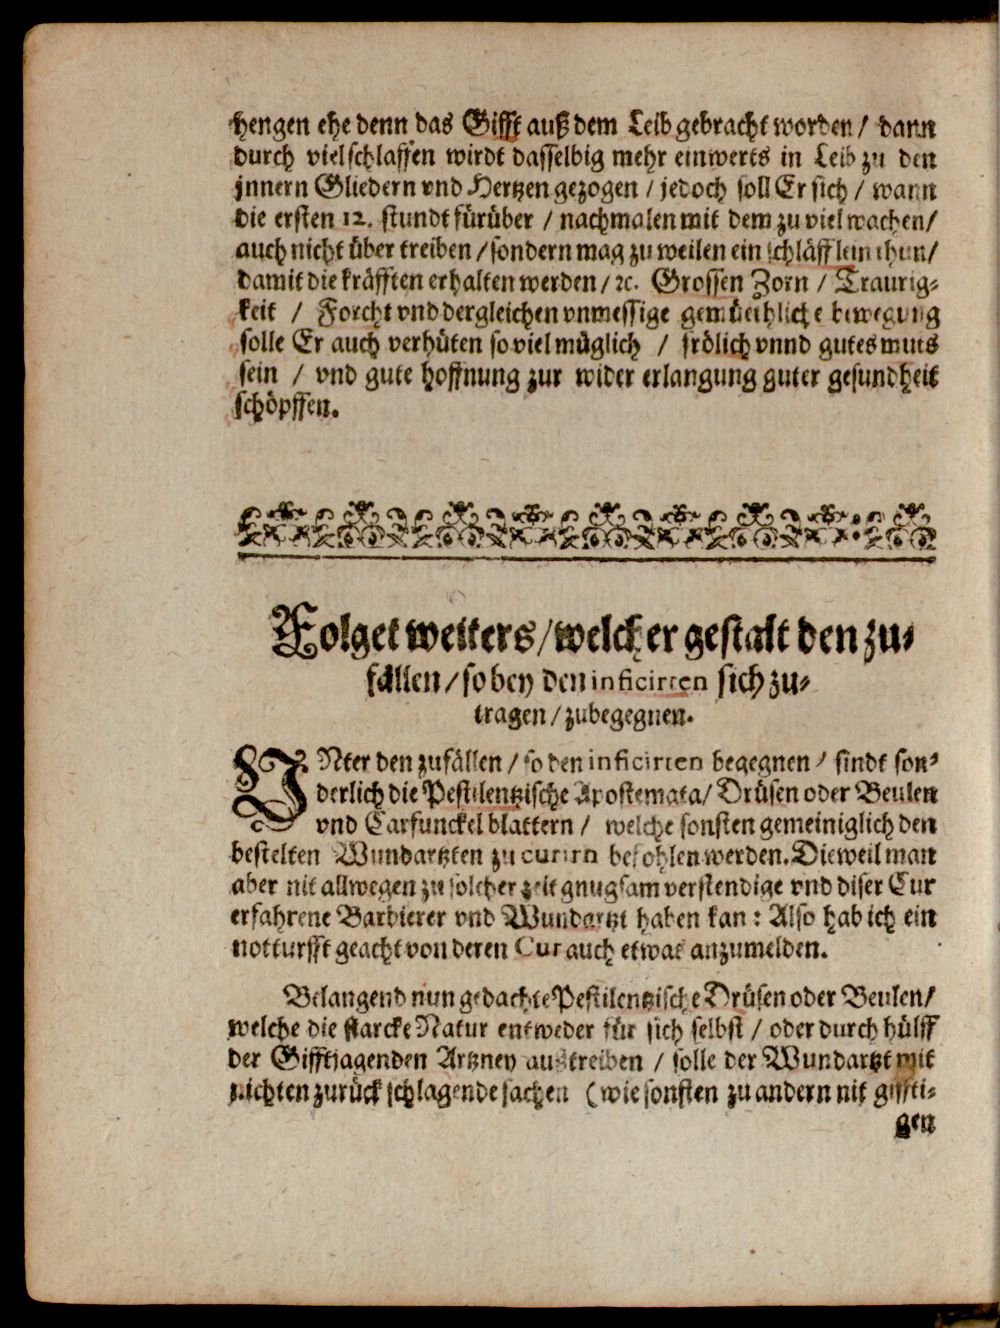 hengen ehe denn das Gifft auß dem Leib gebracht worden / dann
durch viel schlaffen wirdt dasselbig mehr einwerts in Leib zu den
jnnern Gliedern vnd Hertzen gezogen / jedoch soll Er sich / wann
die ersten 12. stundt fürüber / nachmalen mit dem zu viel wachen /
auch nicht über treiben / sondern mag zu weilen ein schläfflein thun /
damit die kräfften erhalten werden / ꝛc. Grossen Zorn / Traurig⸗
keit / Forcht vnd dergleichen vnmessige gemüethliche bewegung
solle Er auch verhüten so viel müglich / frölich vnnd gutes muts
sein / vnd gute hoffnung zur wider erlangung guter gesundheit
schöpffen.
Folget weiters / welcher gestalt den zu⸗
fällen / so bey den inficirten sich zu⸗
tragen / zubegegnen.
VNter den zufällen / so den inficirten begegnen / sindt son⸗
derlich die Pestilentzische Apostemata / Drüsen oder Beulen
vnd Carfunckel blattern / welche sonsten gemeiniglich den
bestelten Wundartzten zu curirn befohlen werden. Dieweil man
aber nit allwegen zu solcher zeit gnugsam verstendige vnd diser Cur
erfahrene Barbierer vnd Wundartzt haben kan : Also hab ich ein
notturfft geacht von deren Cur auch etwas anzumelden.
Belangend nun gedachte Pestilentzische Drüsen oder Beulen /
welche die starcke Natur entweder für sich selbst / oder durch hülff
der Gifftjagenden Artzney außtreiben / solle der Wundartzt mit
nichten zurück schlagende sachen ( wie sonsten zu andern nit giffti⸗
gen